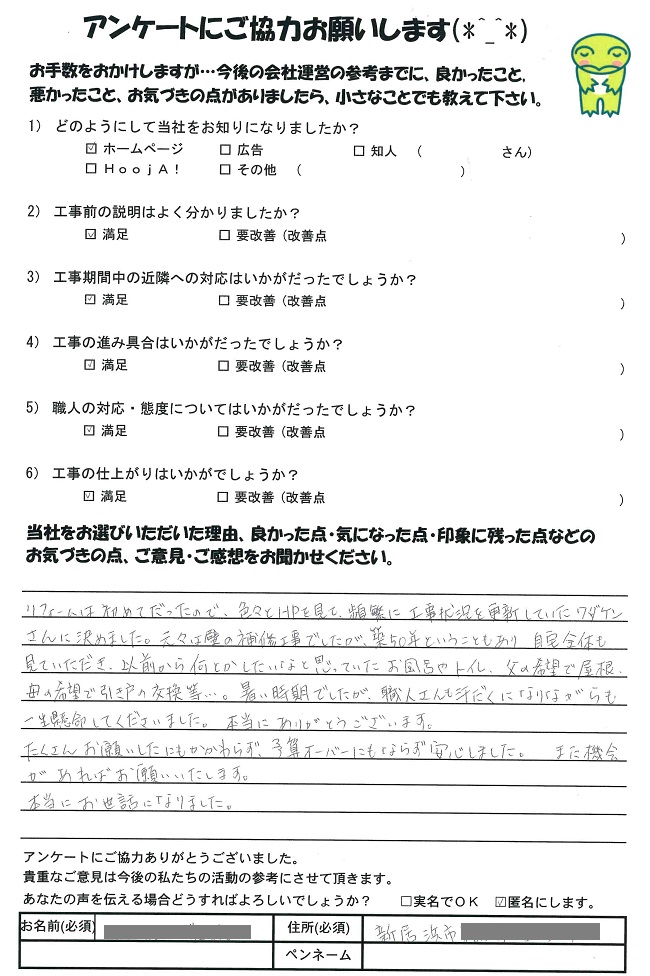 アンケートにご協力お願いします(*^_^*)
お手数をおかけしますが…今後の会社運営の参考までに、良かったこと、
悪かったこと、お気づきの点がありましたら、小さなことでも教えて下さい。
1) どのようにして当社をお知りになりましたか?
☑ ホームページ □ 広告 □ 知人 ( さん)
□ HoojA! □ その他 ( )
2) 工事前の説明はよく分かりましたか?
☑ 満足 □ 要改善 (改善点 )
3) 工事期間中の近隣への対応はいかがだったでしょうか?
☑ 満足 □ 要改善 (改善点 )
4) 工事の進み具合はいかがだったでしょうか?
☑ 満足 □ 要改善 (改善点 )
5) 職人の対応・態度についてはいかがだったでしょうか?
☑ 満足 □ 要改善 (改善点 )
6) 工事の仕上がりはいかがでしょうか?
☑ 満足 □ 要改善 (改善点 )
当社をお選びいただいた理由、良かった点・気になった点・印象に残った点などの
お気づきの点、ご意見・ご感想をお聞かせください。
リフォームは初めてだったので、色々とHPを見て、頻繁に工事状況を更新していたワダケン
さんに決めました。元々は塵の補修工事でしたが、築50年ということもあり 自宅全体も
見ていただき、以前から何とかしたいなと思っていたお風呂やトイレ、父の希望で屋根、
母の希望で引き戸の交換等…。暑い時期でしたが、職人さんも汗だくになりながらも
一生懸命してくださいました。本当にありがとうございます。
たくさんお願いしたにもかかわらず、予算オーバーにもならず安心しました。 また機会
があればお願いいたします。
本当にお世話になりました。
アンケートにご協力ありがとうございました。
貴重なご意見は今後の私たちの活動の参考にさせて頂きます。
あなたの声を伝える場合どうすればよろしいでしょうか? □実名でOK ☑匿名にします。
お名前(必須) 住所(必須) 新居浜市
ペンネーム